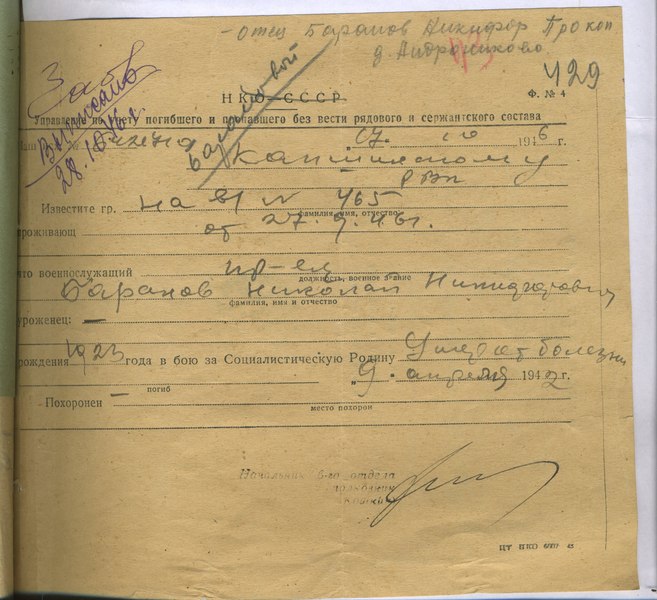 - отец Баранов Никифор Прокоп
д. Андрониково
429
Баландовой
НКО-СССР
Ф. № 4
Управление по учету погибшего и пропавшего без вести рядового и сержантского состава
Выписано
28.10.46 г.
07. 10 1946 г.
РВК
Известите гр. на вх № 465
фамилия, имя, отчество
от 27. 9. 46 г.
что военнослужащий
должность, военное звание
Баранов Николай Никифорович
фамилия, имя и отчество
уроженец: —
рождения 1923 года в бою за Социалистическую Родину Умер от болезни
погиб
„9. апреля 1942 г.
Похоронен —
место похорон
Начальник 6-го отдела
полковник